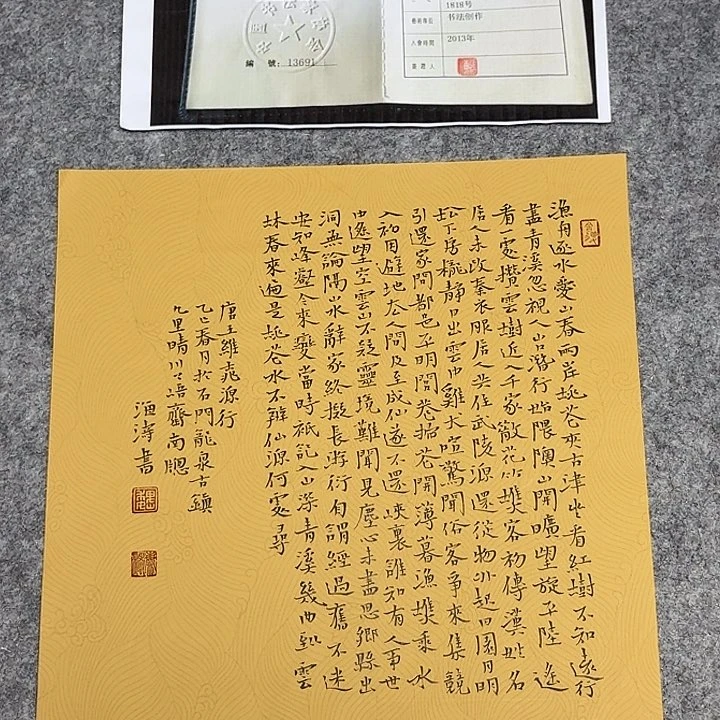 1818号
藝術專長 书法创作
入會時間 2013年
編 號:13691
漁舟逐水愛山春兩岸桃花夾古津坐看紅樹不知遠行
盡青溪忽視人山口潛行始隈隩山開曠望旋平陸遙
看一處攢雲樹近入千家散花竹樵客初傳漢姓名
居人未改秦衣服居人共住武陵源還從物外起田園月明
松下房櫳靜日出雲中雞犬喧驚聞俗客爭來集競
引還家問都邑平明閭巷掃花開薄暮漁樵乘水
入初因避地去人間及至成仙遂不還峽裏誰知有人事世
中遙望空雲山不疑靈境難聞見塵心未盡思鄉縣出
洞無論隔山水辭家終擬長游衍自謂經過舊不迷
安知峰壑今來變當時祇記入山深青溪幾曲到雲
林春來遍是桃花水不辨仙源何處尋
唐王維桃源行
乙巳春月於石門龍泉古鎮
九里晴川之培齋南牕
海濤書